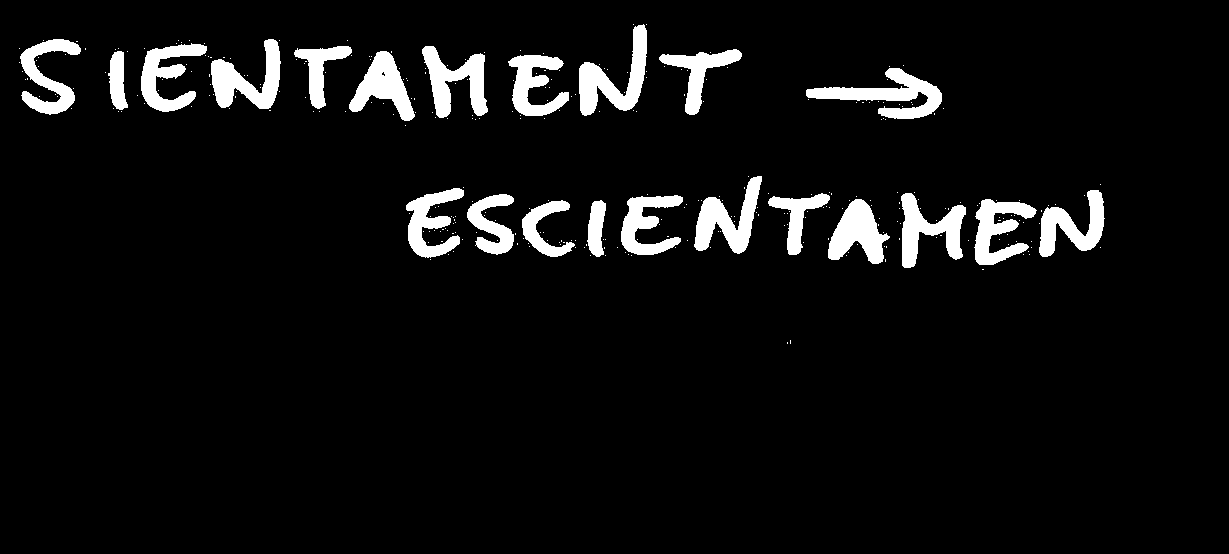 SIENTAMENT →
ESCIENTAMEN